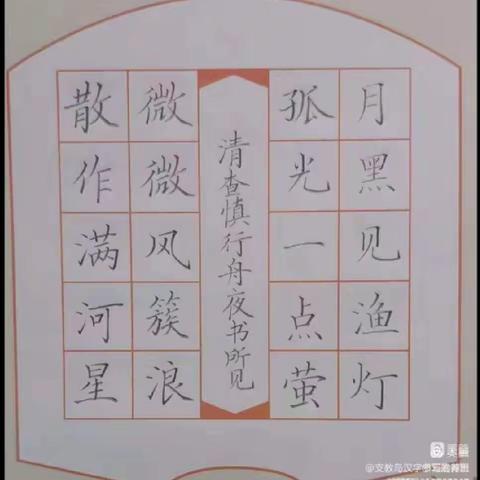 月黑见渔灯
孤光一点萤
清查慎行舟夜书所见
微微风簇浪
散作满河星
美篇